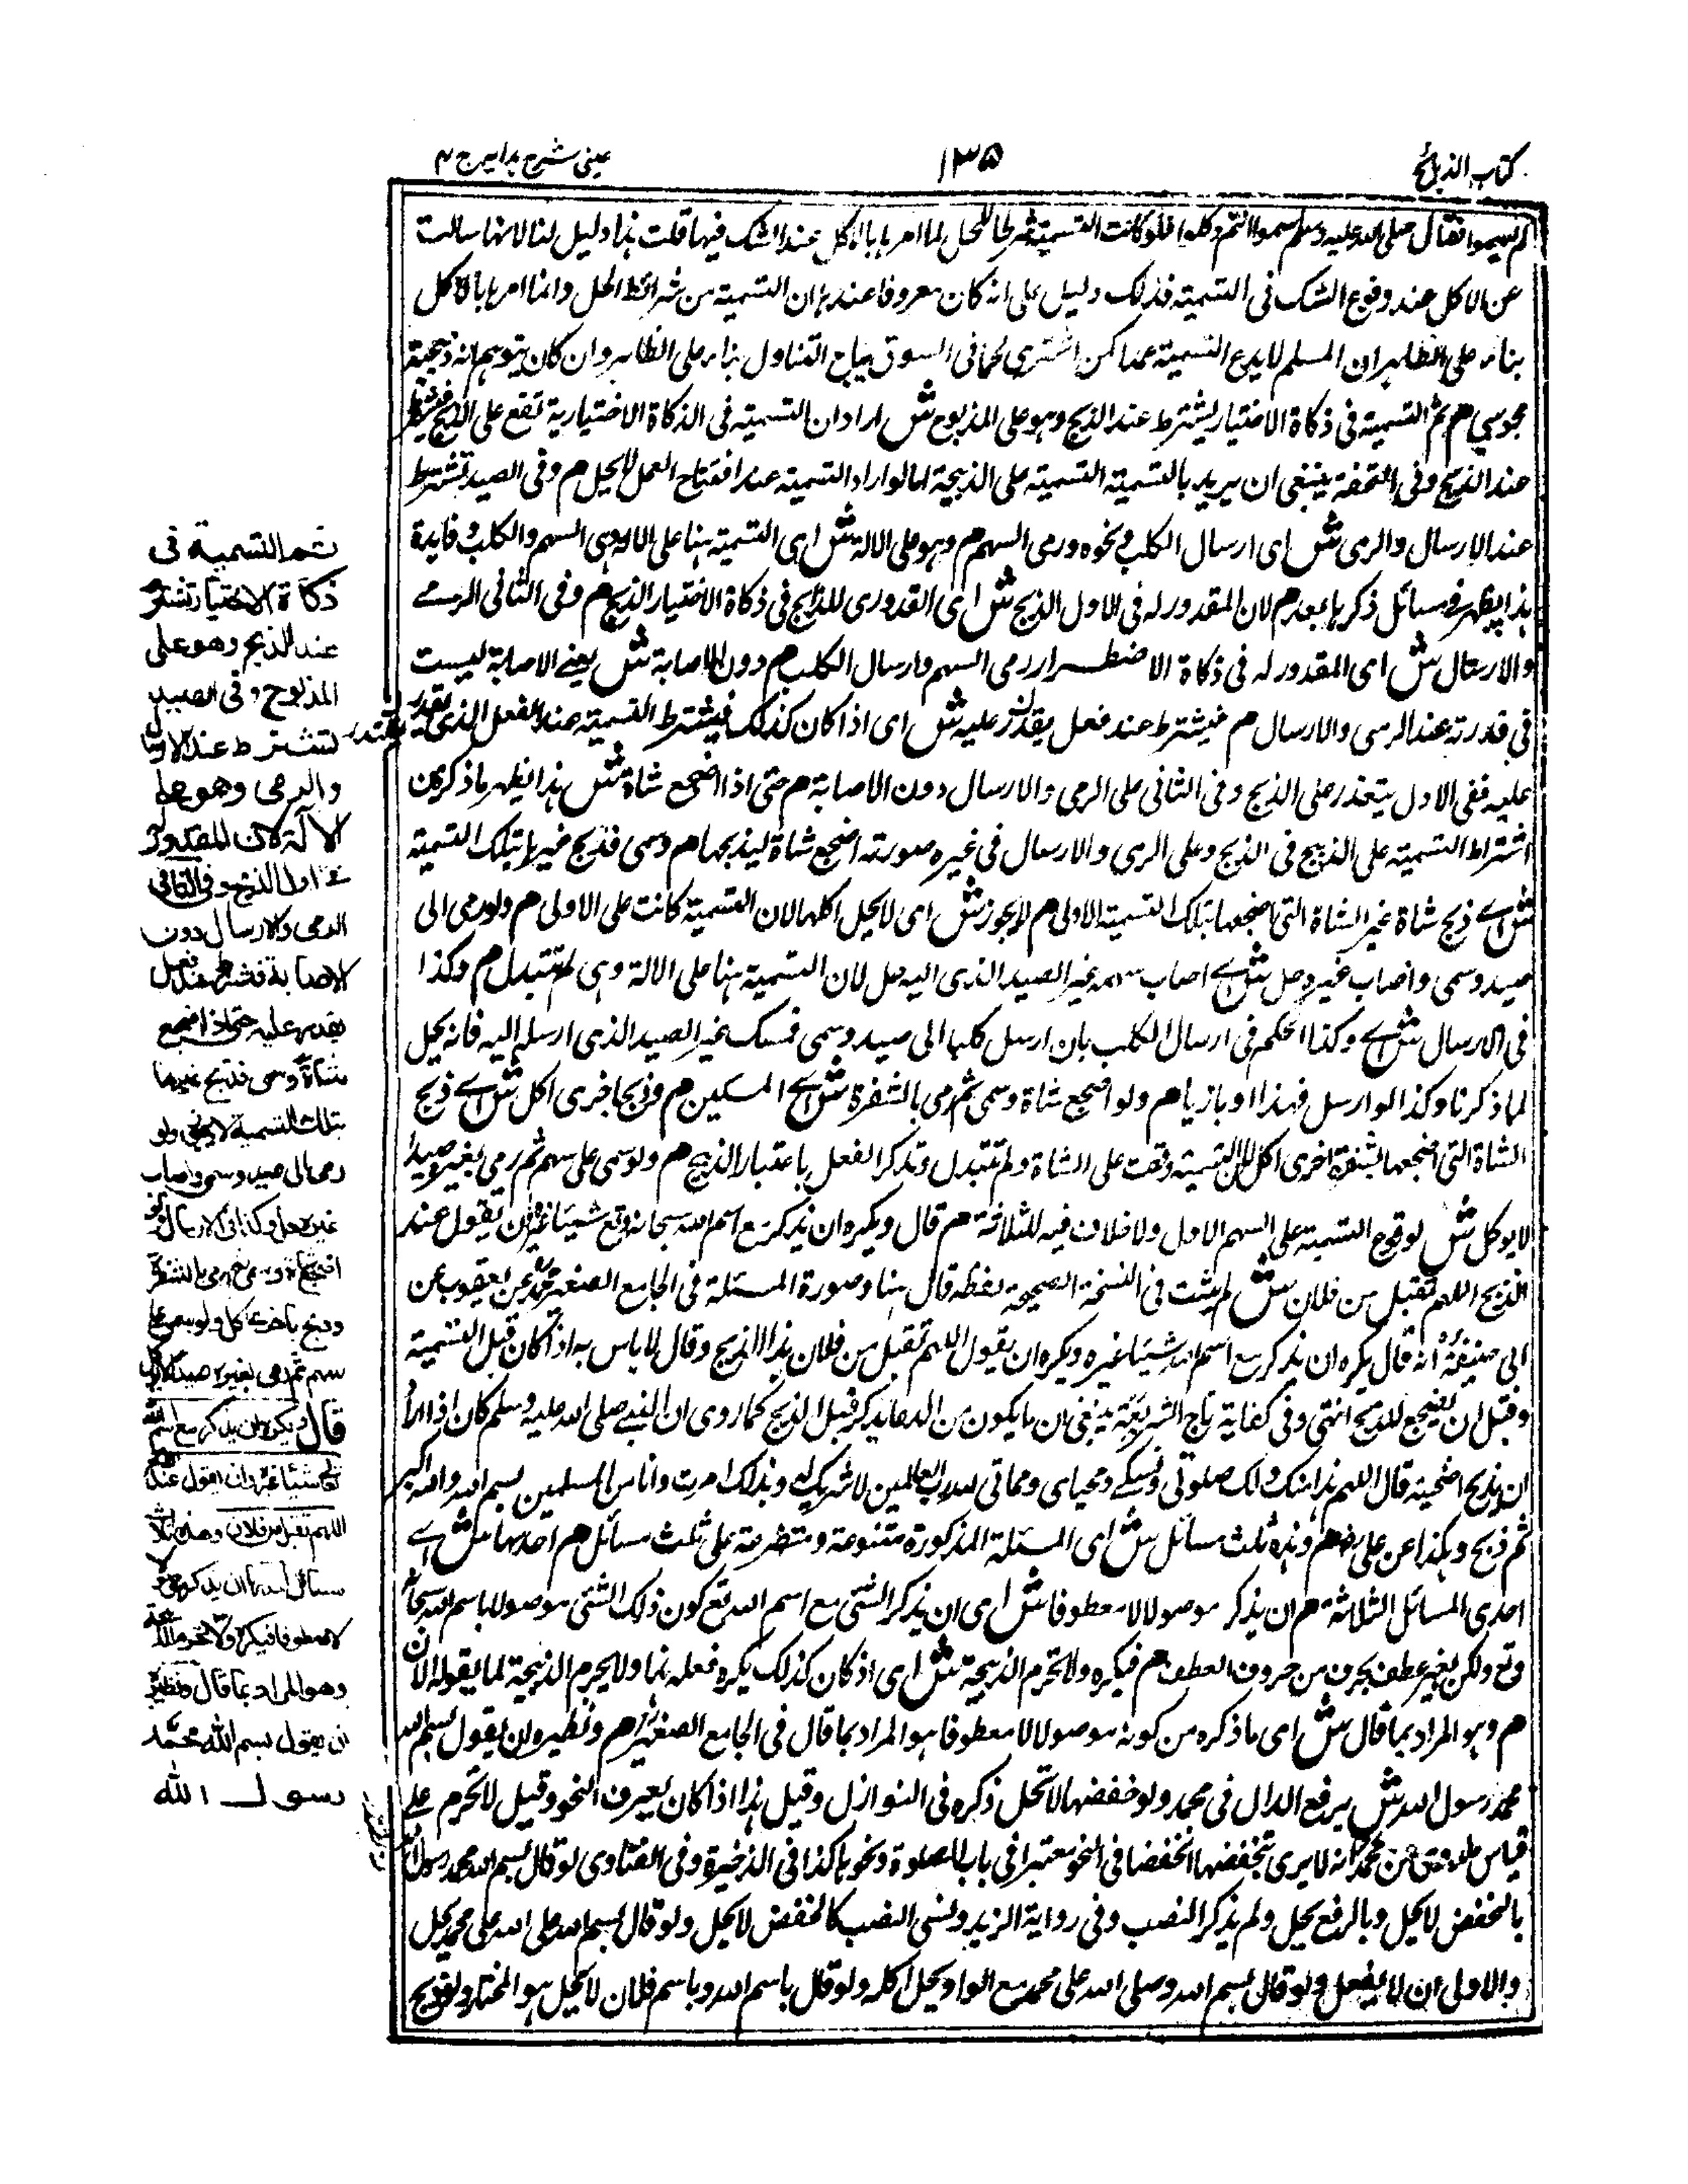 كتاب الذبائح
١٣٥
عينى شرح هدايه ج ٤
لم يسموا فقال صلى الله عليه وسلم سموا انتم وكلوا فلو كانت التسمية شرطا للحل لما امرها بالاكل عند الشك فيها قلت هذا دليل لنا لانها سالت
عن الاكل عند وقوع الشك فى التسمية فذلك دليل على انه كان معروفا عندها ان التسمية من شرائط الحل وانما امرها بالاكل
بناء على الظاهر ان المسلم لا يدع التسمية عمدا كمن اشترى لحما فى السوق يباح التناول بناء على الظاهر وان كان يتوهم انه ذبيحة
مجوسي هم ثم التسمية فى ذكاة الاختيار يشترط عند الذبح وهو على المذبوح ش اراد ان التسمية فى الذكاة الاختيارية تقع على الذبح فيشترط
عند الذبح وفى التحفة ينبغى ان يريد بالتسمية التسمية على الذبيحة اما لو اراد التسمية عند افتتاح العمل لا يحل هم وفى الصيد تشترط
عند الارسال والرمى ش اى ارسال الكلب ونحوه ورمى السهم هم وهو على الالة ش اى التسمية هنا على الالة وهى السهم والكلب وفايدة
هذا يظهر فى مسائل ذكرها بعد هم لان المقدور له فى الاول الذبح ش اى القدورى للذابح فى ذكاة الاختيار الذبح هم وفى الثانى الرمے
والارسال ش اى المقدور له فى ذكاة الاضطرار رمى السهم وارسال الكلب هم دون الاصابة ش يعنے الاصابة ليست
فى قدرته عند الرمى والارسال هم فيشترط عند فعل يقدر عليه ش اى اذا كان كذلك فيشترط التسمية عند الفعل الذى يقدر
عليه ففى الاول يتعذر على الذبح وفى الثانى على الرمى والارسال دون الاصابة هم حتى اذا اضجع شاة ش هذا يظهر ما ذكر من
اشتراط التسمية على الذبيح فى الذبح وعلى الرمى والارسال فى غيره صورته اضجع شاة ليذبحها هم وسمى فذبح غيرها بتلك التسمية
ش اے ذبح شاة غير الشاة التى اضجعها بتلك التسمية الاولى هم لا يجوز ش اى لا يحل اكلها لان التسمية كانت على الاولى هم ولو رمى الى
صيد وسمى واصاب غيره حل ش اے اصاب سهمه غير الصيد الذى اليه حل لان التسمية هنا على الالة وهى لم تتبدل هم وكذا
فى الارسال ش اے وكذا الحكم فى ارسال الكلب بان ارسل كلبا الى صيد وسمى فمسك غير الصيد الذى ارسله اليه فانه يحل
لما ذكرنا وكذا لو ارسل فهدا او بازيا هم ولو اضجع شاة وسمى ثم رمى بالشفرة ش اے السكين هم وذبح باخرى اكل ش اے ذبح
الشاة التى اضجعها بشفرة اخرى اكل لان التسمية وقعت على الشاة ولم تتبدل وتذكر الفعل باعتبار الذبيح هم ولو سمى على سهم ثم رمى بغيره صيدا
لا يوكل ش لوقوع التسمية على السهم الاول ولا خلاف فيه للثلاثة هم قال ويكره ان يذكر مع اسم الله سبحانه وتع شيئا غيره وان تقول عند
الذبح اللهم تقبل من فلان ش لم يثبت فى النسخة الصحيحة لفظه قال هنا وصورة المسئلة فى الجامع الصغير محمد عن يعقوب عن
ابى حنيفة انه قال يكره ان يذكر مع اسم الله شيئا غيره ويكره ان يقول اللهم تقبل من فلان هذا الذبح وقال لا باس به اذا كان قبل التسمية
وقبل ان يضجع للذبح انتهى وفى كفاية تاج الشريعة ينبغى ان ما يكون من الدعا يذكر قبل الذبح كما روى ان النبے صلى الله عليه وسلم كان اذا اراد
ان يذبح اضحيته قال اللهم هذا منك ولك صلوتى ونسكے ومحياى ومماتى لله رب العالمين لا شريك له وبذلك امرت وانا من المسلمين بسم الله والله اكبر
ثم ذبح وهكذا عن على رض هم وهذه ثلث مسائل ش اى المسئلة المذكورة متنوعة ومتفرعة على ثلث مسائل هم احدها ش اے
احدى المسائل الثلاثة هم ان يذكر موصولا لا معطوفا ش اى ان يذكر الشئ مع اسم الله تع كون ذلك الشئ موصولا باسم الله سبحانه
وتع ولكن بغير عطف بحرف من حروف العطف هم فيكره ولا تحرم الذبيحة ش اى اذ كان كذلك يكره فعله ولا يحرم الذبيحة لما يقوله الان
هم وهو المراد بما قال ش اى ما ذكره من كونه موصولا لا معطوفا هو المراد بما قال فى الجامع الصغير هم ونظيره ان يقول بسم الله
محمد رسول الله ش برفع الدال فى محمد ولو خفضها لا تحل ذكره فى النوازل وقيل هذا اذا كان يعرف النحو وقيل لا تحرم علے
قياس ما روى عن محمد انه لا يرى بخفضها الخفضا فى النحو معتبرا فى باب الصلوة ونحوها كذا فى الذخيرة وفى الفتاوى لو قال بسم الله محمد رسول الله
بالخفض لا يحل وبالرفع يحل ولم يذكر النصب وفى رواية الزيدوستى النصب كالخفض لا يحل ولو قال بسم الله صلى الله على محمد يحل
والاولى ان لا يفعل ولو قال بسم الله وصلى الله على محمد مع الواو يحل اكله ولو قال باسم الله وباسم فلان لا يحل هو المختار ولو ذبح
ثم التسمية فى
ذكاة الاختيار تشترط
عند الذبح وهو على
المذبوح وفى الصيد
تشترط عند الارسال
والرمى وهو على
الالة لان المقدور له
فى الاول الذبح وفى الثانى
الرمى والارسال دون
الاصابة فتشترط عند فعل
يقدر عليه حتى اذا اضجع
شاة وسمى فذبح غيرها
بتلك التسمية لا يجوز ولو
رمى الى صيد وسمى واصاب
غيره حل وكذا فى الارسال ولو
اضجع شاة وسمى ثم رمى بالشفرة
وذبح باخرى اكل ولو سمى على
سهم ثم رمى بغيره صيدا لا يوكل
قال ويكره ان يذكر مع اسم الله
تعالى شيئا غيره وان يقول عند الذبح
اللهم تقبل من فلان وهذه ثلاث
مسائل احدها ان يذكر موصولا
لا معطوفا فيكره ولا تحرم الذبيحة
وهو المراد بما قال ونظيره
ان يقول بسم الله محمد
رسول الله